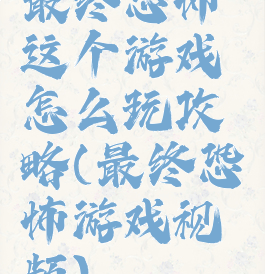 最终恐怖
这个游戏
怎么玩攻
略(最终恐
怖游戏视
频)